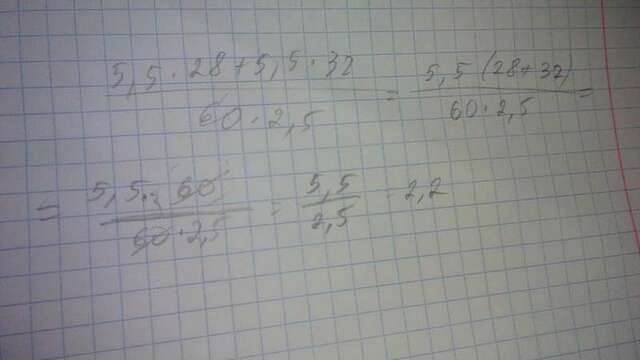 (5,5 · 28 + 5,5 · 32) / (60 · 2,5) = 5,5 (28 + 32) / (60 · 2,5) =
= (5,5 · 60) / (60 · 2,5) = 5,5 / 2,5 = 2,2